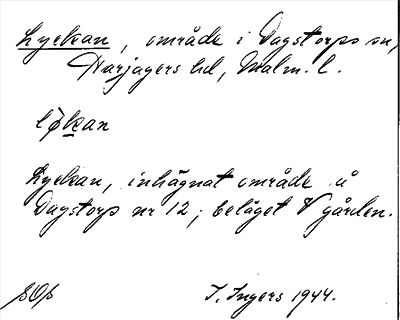 Lyckan, område i Dagstorps sn,
Harjagers hd, Malm. l.
løkan
Lyckan, inhägnat område å
Dagstorp nr 12; beläget V gården.
I. Ingers 1944.